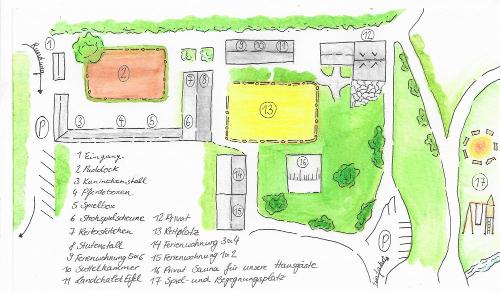 1
9 10 11
12
Rundweg
2
7 8
13
P
3 4 5 6
16
14
15
17
P
1 Eingang
2 Paddock
3 Kaninchenstall
4 Pferdeboxen
5 Spielbox
6 Strohspielscheune
7 Reiterstübchen
8 Stutenstall
9 Ferienwohnung 5 o 6
10 Sattelkammer
11 Landchalet Eifel
12 Privat
13 Reitplatz
14 Ferienwohnung 3 o 4
15 Ferienwohnung 1 o 2
16 Privat Sauna für unsere Hausgäste
17 Spiel- und Begegnungsplatz